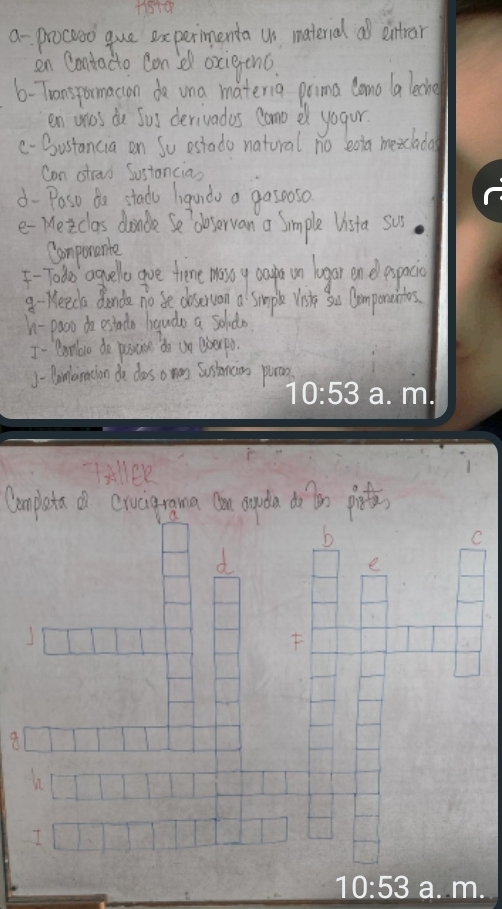 Pista
a- proceso que experimenta un material al entrar
en Contacto Con el oxigeno.
b- Transformacion de una materia prima Como la leche
en unos de Sus derivados Como el yogur.
c- Sustancia en Su estado natural no esta mezclados
Con otras Sustancias
d- Paso de stado liquido a gaseoso.
e- Mezclas donde Se observan a Simple Vista sus
Componente
F- Todo aquello que tiene masa y ocupa un lugar en el espacio
g- Mezcla donde no Se observan a Simple Vista sus Componentes.
h- paso de estado liquido a Solido.
I- Cambio de posición de un Cuerpo.
J- Combinacion de dos o mas Sustancias puras.
10:53 a. m.
TAllER
Completa el Crucigrama Con ayuda de las pistas
a
b
c
d
e
J
F
g
h
I
10:53 a. m.